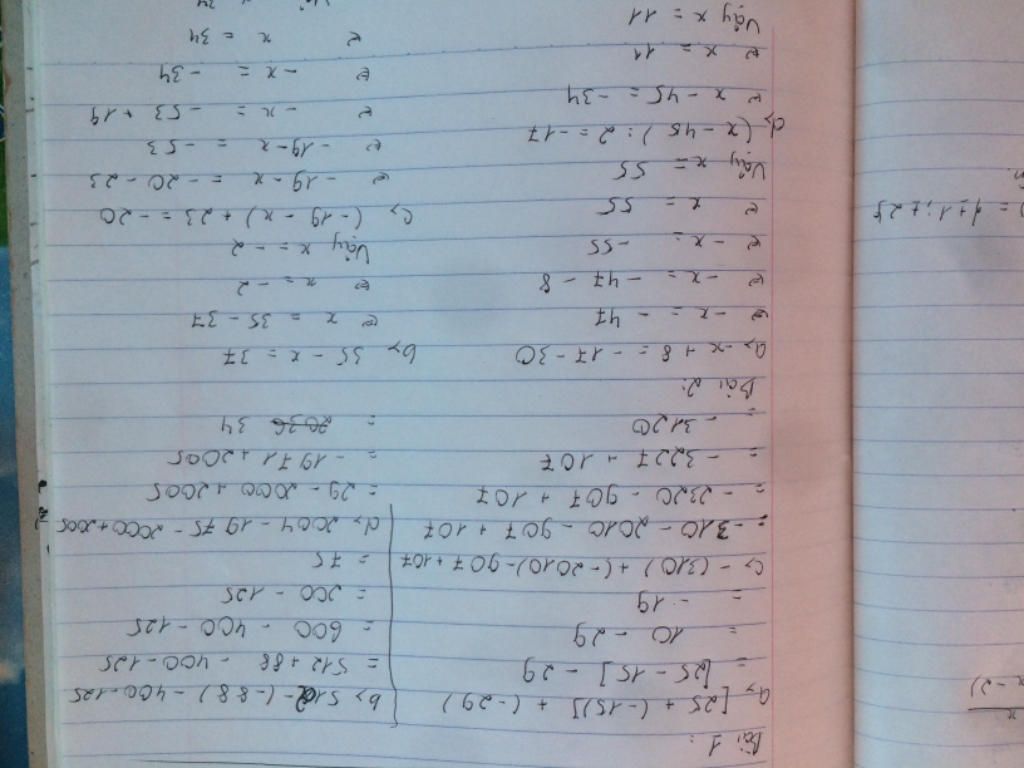 Bài 1:
a> [25 + (-15)] + (-29)
= [25 - 15] - 29
= 10 - 29
= - 19
c> - (310) + (-2010) - 907 + 107
= -310 - 2010 - 907 + 107
= - 2320 - 907 + 107
= - 3227 + 107
= - 3120
b> 512 - (-88) - 400 - 125
= 512 + 88 - 400 - 125
= 600 - 400 - 125
= 200 - 125
= 75
d> 2004 - 1975 - 2000 + 2005
= 29 - 2000 + 2005
= - 1971 + 2005
= 34
Bài 2:
a> -x + 8 = - 17 - 30
⇔ -x = - 47
⇔ -x = - 47 - 8
⇔ -x = -55
⇔ x = 55
Vậy x = 55
d> (x - 45) : 2 = -17
⇔ x - 45 = -34
⇔ x = 11
Vậy x = 11
b> 35 - x = 37
⇔ x = 35 - 37
⇔ x = -2
Vậy x = -2
c> (-19 - x) + 23 = -20
⇔ -19 - x = -20 - 23
⇔ -19 - x = -53
⇔ -x = -53 + 19
⇔ -x = -34
⇔ x = 34
Vậy x = 34